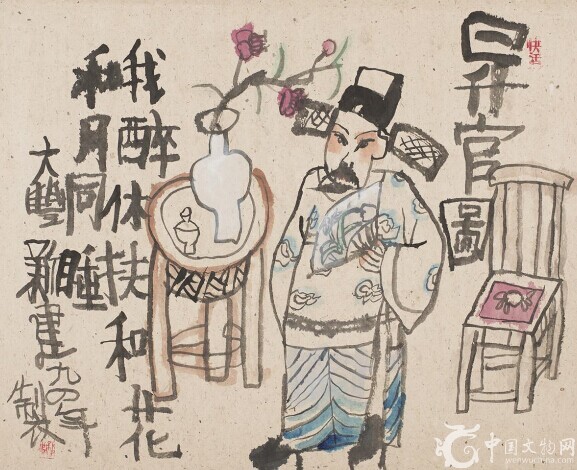 昇官圖
快活
我醉休扶和花
和月同睡
大豐新建九四年
製
中国文物网